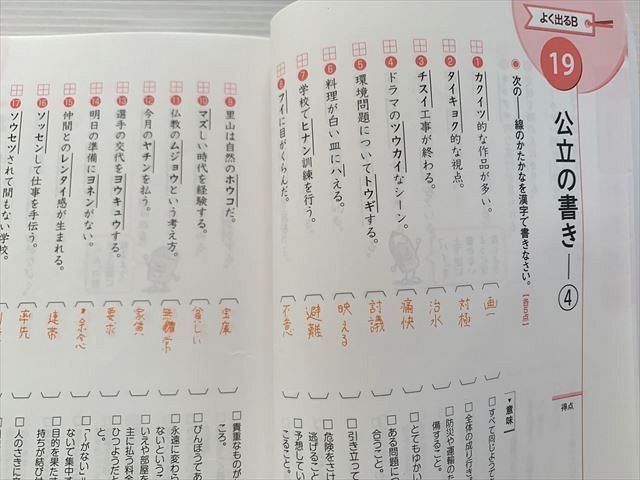 よく出るB
19
公立の書き—④
得点
●次の——線のかたかなを漢字で書きなさい。
1 カクイツ的な作品が多い。
2 タイキョク的な視点。
3 チスイ工事が終わる。
4 ドラマのツウカイなシーン。
5 環境問題についてトウギする。
6 料理が白い皿にハえる。
7 学校でヒナン訓練を行う。
8 フイに目がくらんだ。
9 里山は自然のホウコだ。
10 マズしい時代を経験する。
11 仏教のムジョウという考え方。
12 今月のヤチンを払う。
13 選手の交代をヨウキュウする。
14 明日の準備にヨネンがない。
15 仲間とのレンタイ感が生まれる。
16 ソッセンして仕事を手伝う。
17 ソウセツされて間もない学校。
画一
対極
治水
痛快
討議
映える
避難
不意
宝庫
貧しい
無常
家賃
要求
余念
連帯
率先
▼意味
□すべて同じよう
□全体の成り行き
□防災や運輸の
備すること。
□とてもゆかい
□ある問題につ
合うこと。
□引き立って
□危険をさけ
逃げること
□予想してい
□貴重なものが
ころ。
□びんぼうであ
□永遠に変わら
ないというこ
□いえや部屋を
主に払う料金
□ひつようだと
と。
□「〜がない」
ないで集中す
□目的を果たす
持ちが結び
□人のさきに